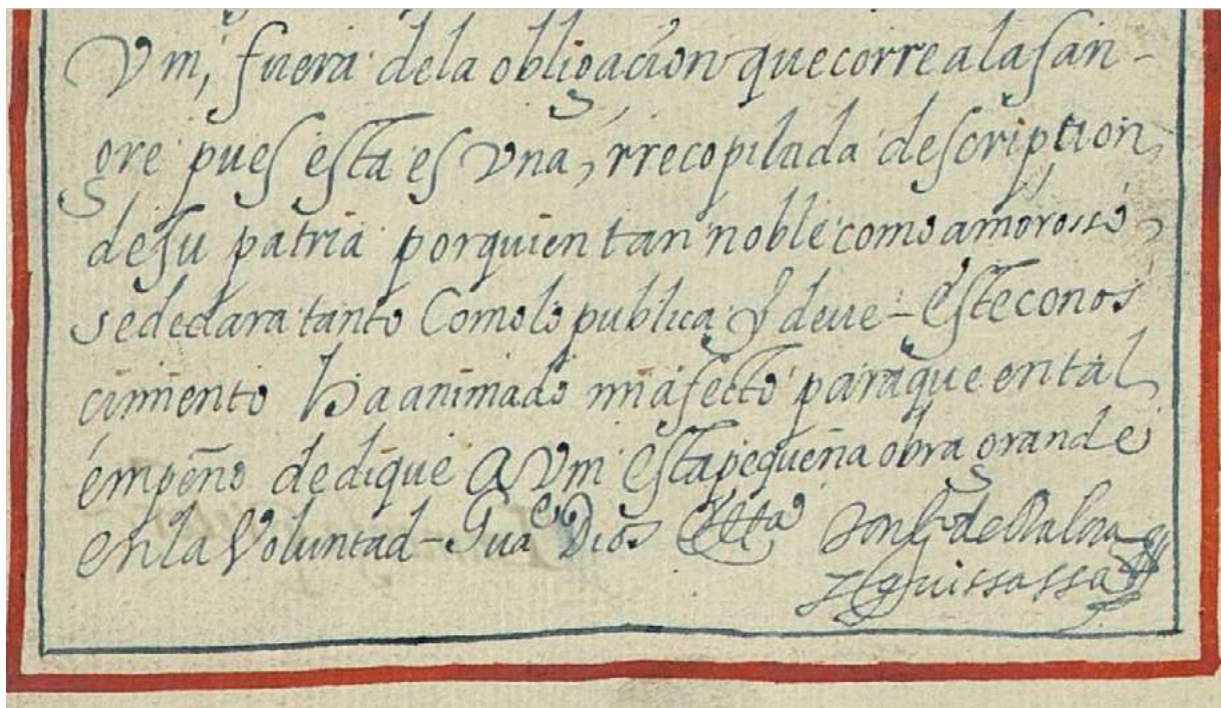 Vm, fuera dela obligacion que corre ala san-
gre pues esta es vna, rrecopilada description
desu patria por quien tan noble como amorosso
sedeclara tanto Como lo publica y deue - Este conos
cimiento ha animado mi afecto para que en tal
empeño dedique A Vm Esta pequeña obra grande
en la Voluntad - Gua Dios Etta